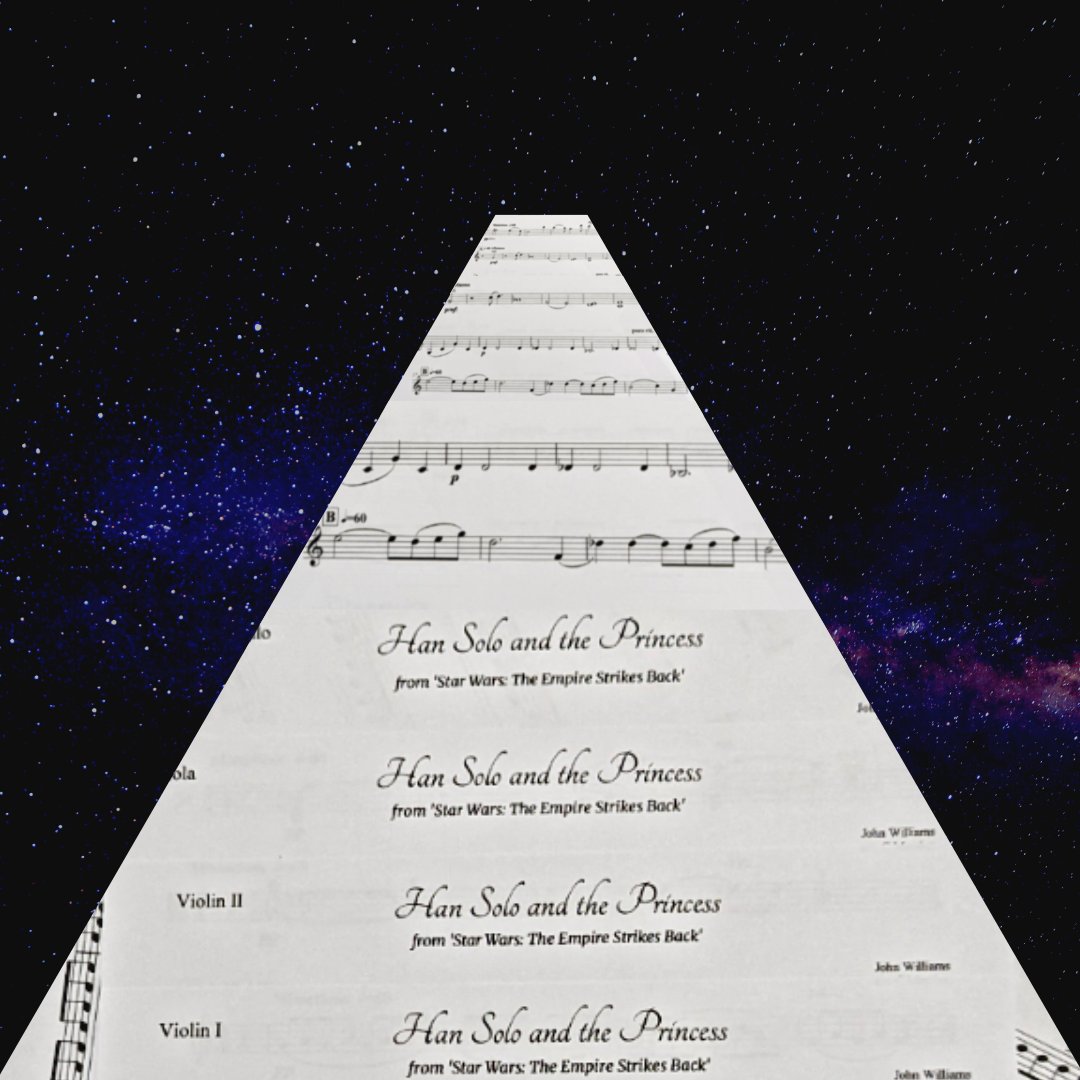 p
B ♩=60
lo
Han Solo and the Princess
from 'Star Wars: The Empire Strikes Back'
Jo
ola
Han Solo and the Princess
from 'Star Wars: The Empire Strikes Back'
John Williams
Violin II
Han Solo and the Princess
from 'Star Wars: The Empire Strikes Back'
John Williams
Violin I
Han Solo and the Princess
from 'Star Wars: The Empire Strikes Back'
John Williams